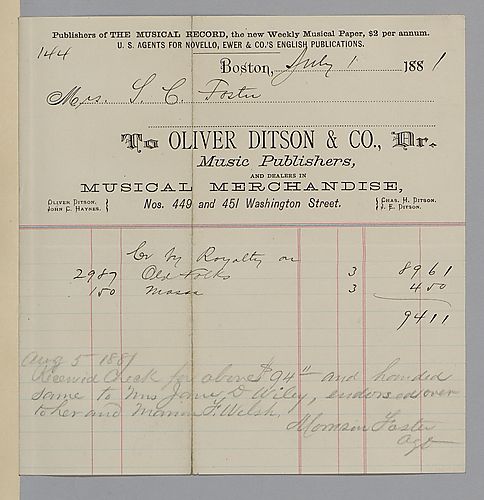 Publishers of THE MUSICAL RECORD, the new Weekly Musical Paper, $2 per annum.
U. S. AGENTS FOR NOVELLO, EWER & CO.'S ENGLISH PUBLICATIONS.
144
Boston, July 1 1881
Mrs. S. C. Foster
To OLIVER DITSON & CO., Dr.
Music Publishers,
AND DEALERS IN
MUSICAL MERCHANDISE,
OLIVER DITSON. JOHN C. HAYNES. Nos. 449 and 451 Washington Street. CHAS. H. DITSON. J. E. DITSON.
Cr by Royalty on
2987 Old Folks 3 89 61
150 Massa 3 4 50
94 11
Aug 5 1881
Received Check for above $94 11 and handed
same to Mrs Jane D Wiley, endorsed over
to her and Marion F. Welsh.
Morrison Foster
Agt